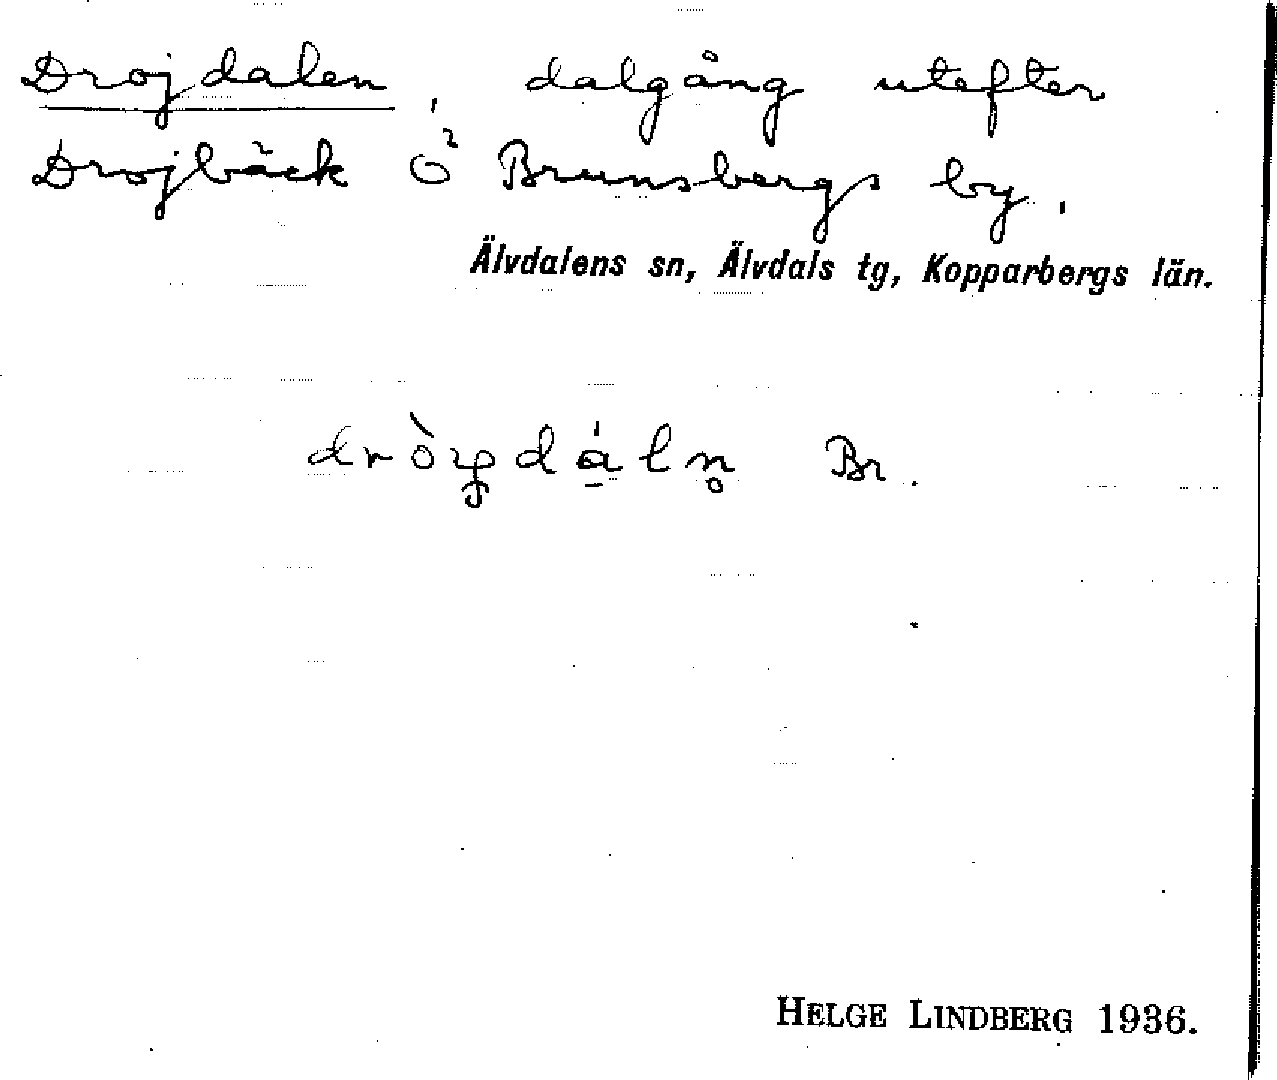 Drojdalen, dalgång utefter
Drojbäck Ö² Brunsbergs by.
Älvdalens sn, Älvdals tg, Kopparbergs län.
Br.
HELGE LINDBERG 1936.